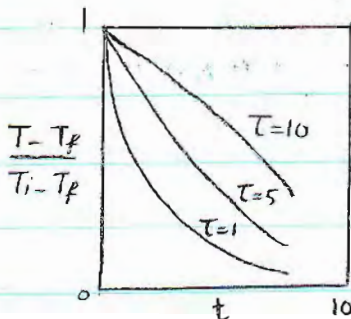 1
T - T_f
T_i - T_f
τ=10
τ=5
τ=1
0
t 10